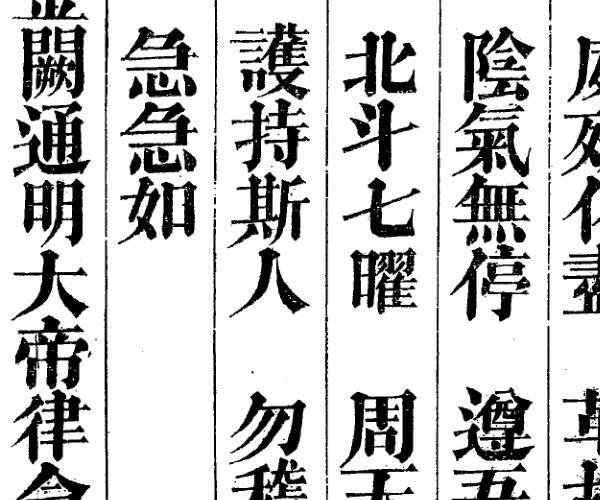 陰氣無停　遵吾
北斗七曜　周天
護持斯人　勿稽
急急如
闕通明大帝律令